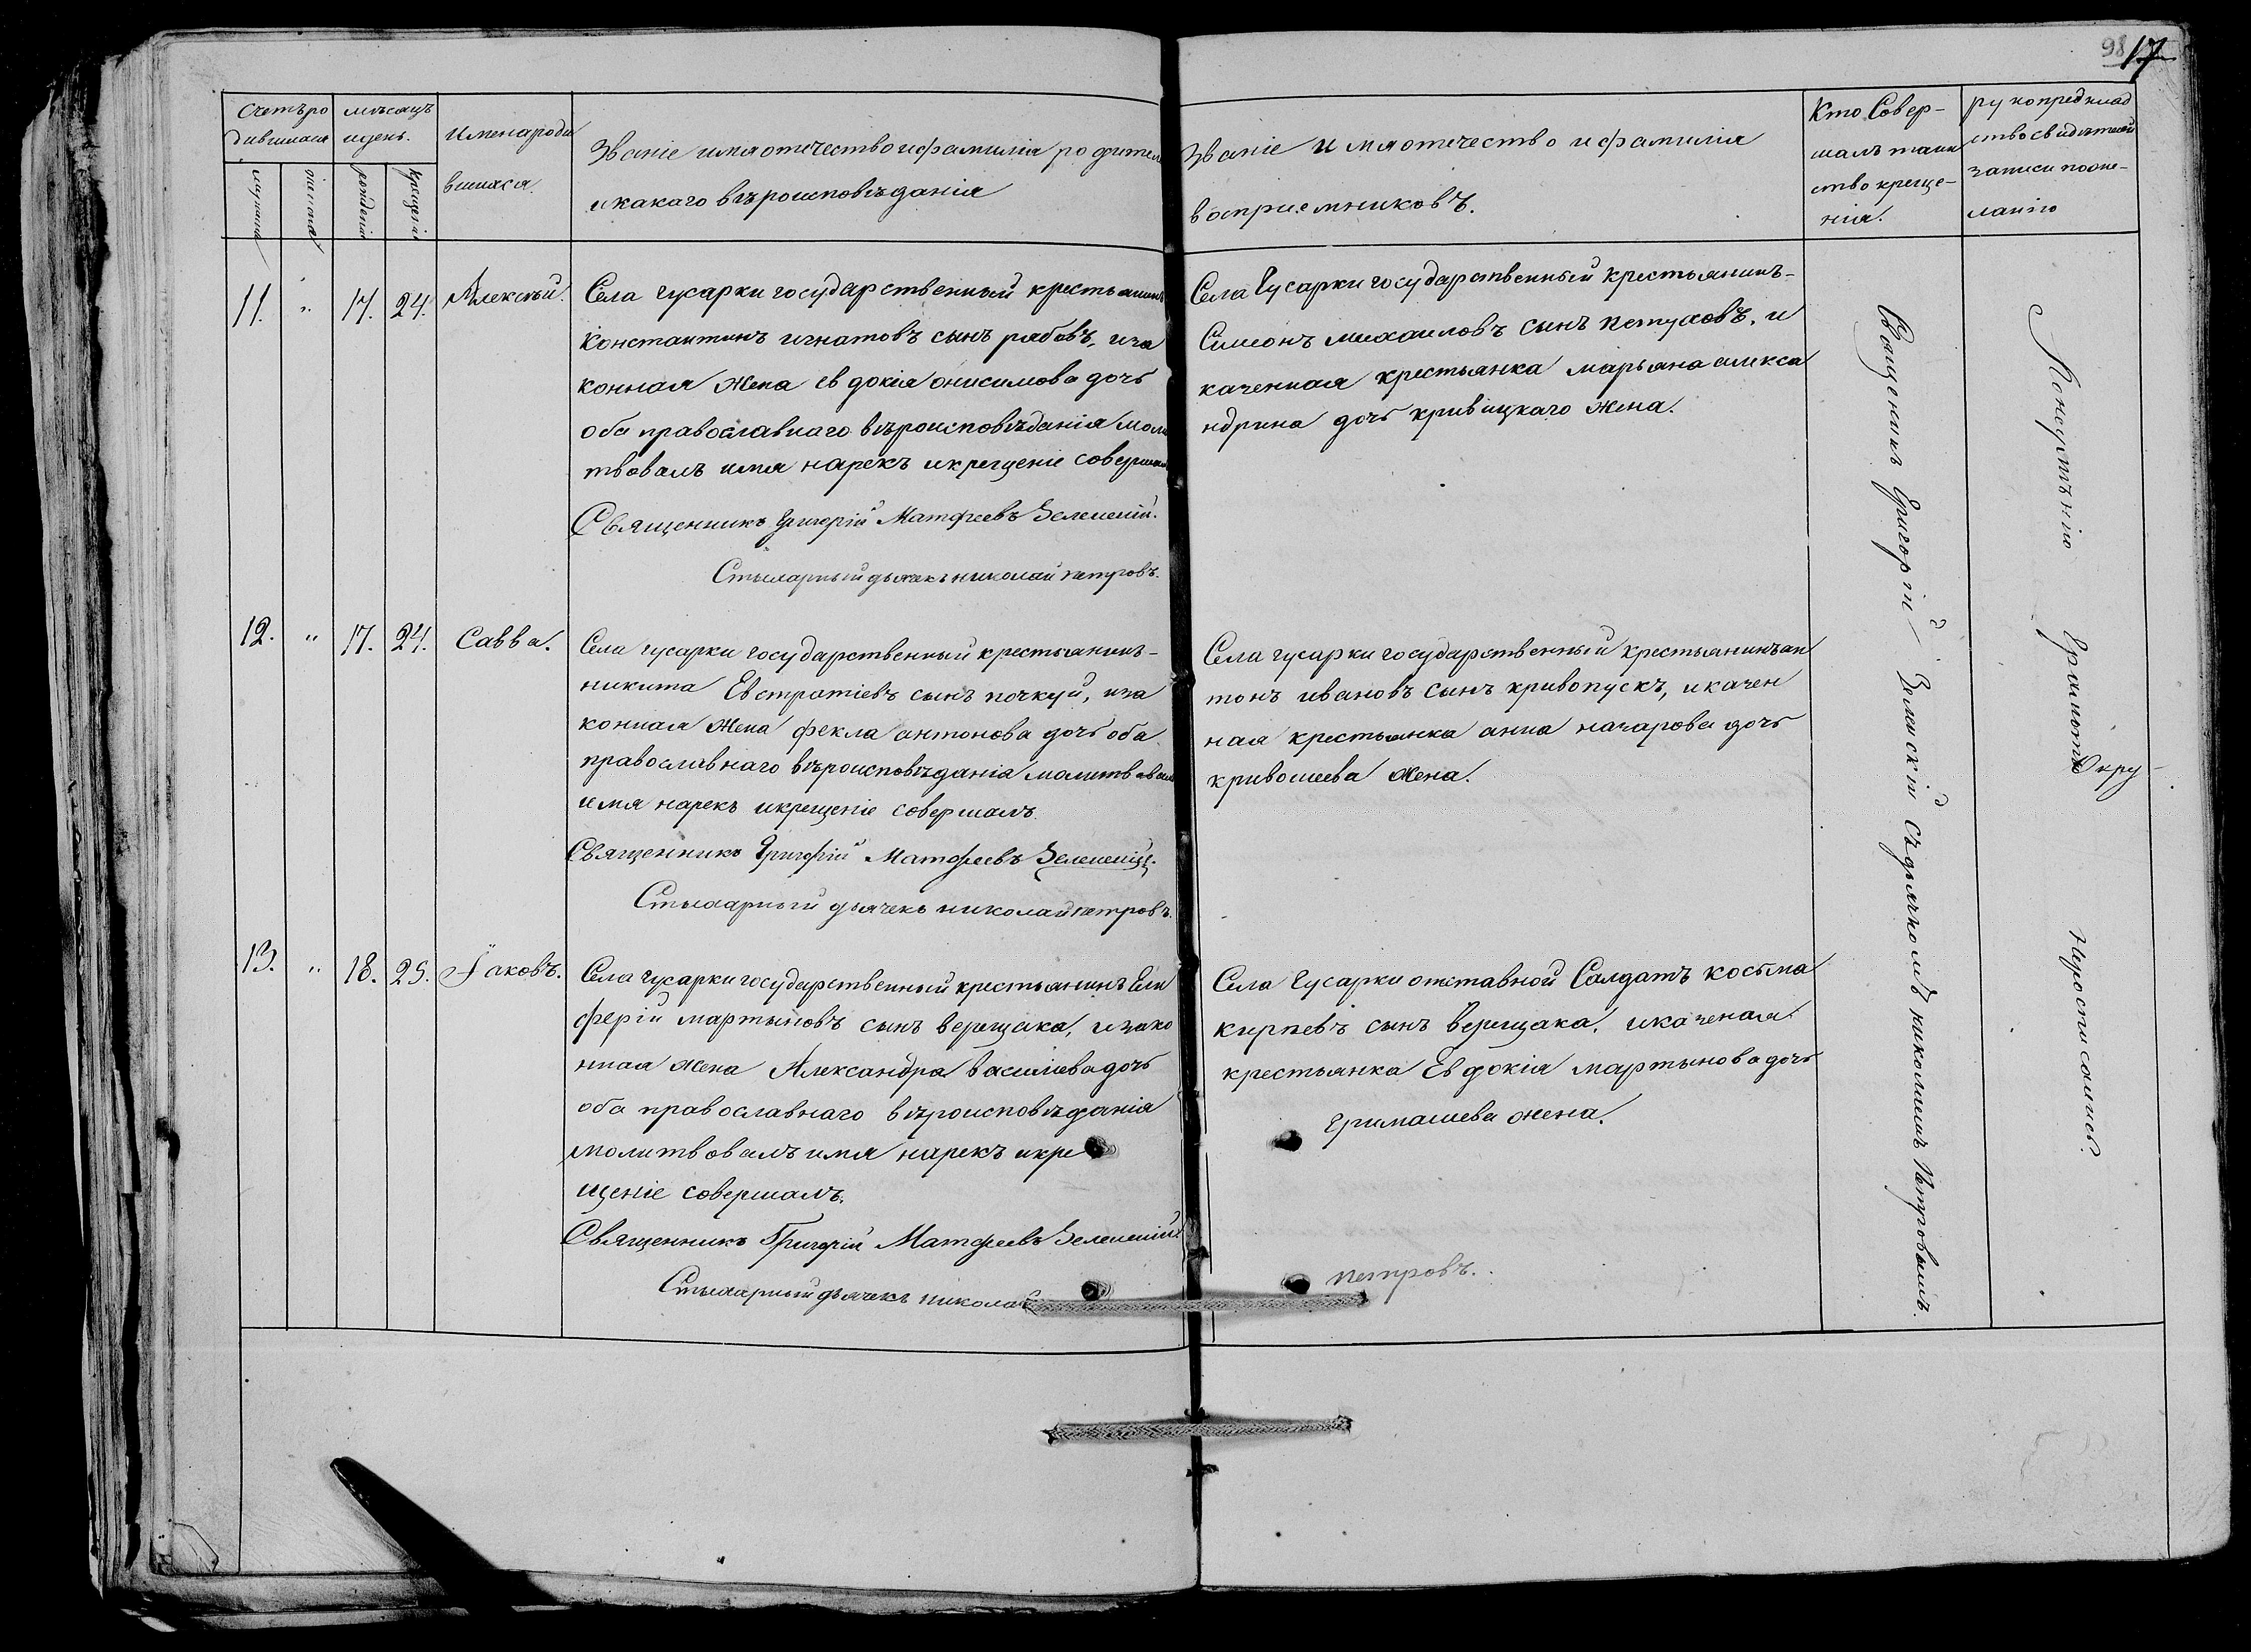 98 17
Счетъ ро
дившихся
мѣсяцъ
идень.
Имена роди
вшихся.
Званіе имя отечество и фамилія родител
и какаго вѣроисповѣданія
Званіе и мя отечество и фамилія
восприемниковъ.
Кто Совер-
шалъ таин
ство креще-
нія.
рукоприклад
ство свидѣтелей
записи по же-
ланію
рожденія
крещенія
11. " 17. 24. Алексѣй.
Села гусарки государственный крестьянинъ
константинъ игнатовъ сынъ рябовъ, и за
конная жена евдокія онисимова дочь
оба православнаго вѣроисповѣданія моли
твовалъ имя нарекъ и крещеніе совершалъ
Священникъ Григорій Матфеевъ Зеленскій.
Стихарный дьячекъ николай петровъ.
Села Гусарки государственный крестьянинъ-
Симеонъ михаиловъ сынъ петуховъ, и
каченная крестьянка марьяна алекса
ндрина дочь кривицкаго жена.
12. " 17. 24. Савва.
Села гусарки государственный крестьянинъ-
никита Евстратіевъ сынъ почкуй, и за
конная жена фекла антонова дочь оба
православнаго вѣроисповѣданія молитвовалъ
имя нарекъ и крещеніе совершалъ
Священникъ Григорій Матфеевъ Зеленскій.
Стихарный дьячекъ николай петровъ.
Села гусарки государственный крестьянинъ ан
тонъ ивановъ сынъ кривопускъ, и качен
ная крестьянка анна назарова дочь
кривошеева жена.
13. " 18. 25. Іаковъ.
Села гусарки государственный крестьянинъ Ели
ферій мартыновъ сынъ верещака, и зако
нная жена Александра василіева дочь
оба православнаго вѣроисповѣданія
молитвовалъ имя нарекъ и кре
щеніе совершалъ.
Священникъ Григорій Матфеевъ Зеленскій
Стихарный дьячекъ николай
петровъ.
Села Гусарки отставной Солдатъ косьма
кирѣевъ сынъ верещака, и каченая
крестьянка Евдокія мартынова дочь
Еримашева жена.
Священникъ Григорій Зеленскій съ дьячкомъ николаемъ Петровымъ.
Понеумѣнію Грамоты
Окру-